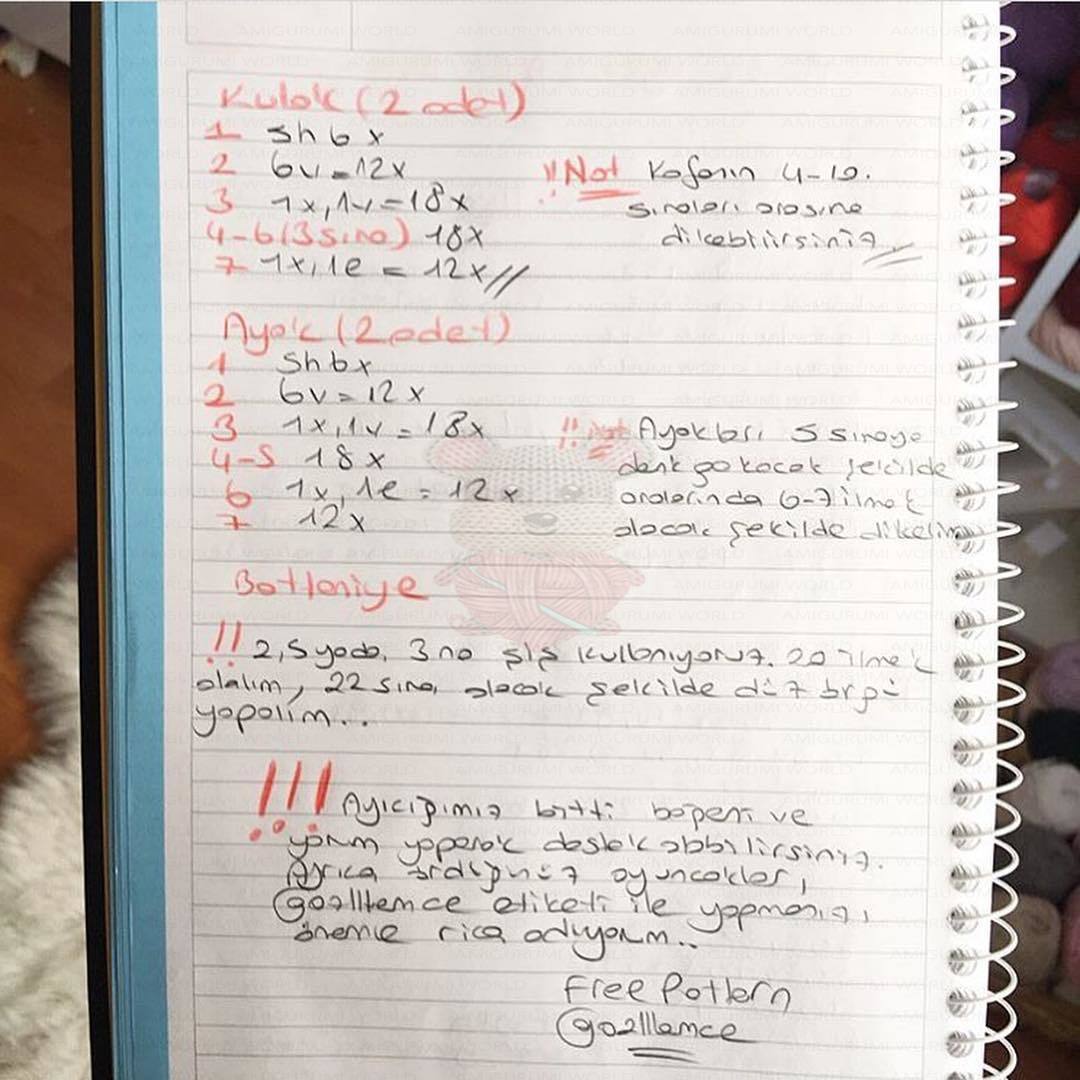 Kulak (2 adet)
1 sh 6x
2 6v = 12x
3 1x, 1v = 18x
4-6 (3 sıra) 18x
7 1x, 1e = 12x //
!! Not Kafanın 4-10.
sıraları arasına
dikebilirsiniz
Ayak (2 adet)
1 sh 6x
2 6v = 12x
3 1x, 1v = 18x
4-5 18x
6 1x, 1e = 12x
7 12x
!! Not Ayakları 5 sıraya
denk gelecek şekilde
aralarında 6-7 ilmek
olacak şekilde dikelim
Battaniye
!! 2,5 yada 3 no şiş kullanıyoruz. 20 ilmek
alalım, 22 sıra olacak şekilde düz örgü
yapalım...
!!! Ayıcığımız bitti beğeni ve
yorum yaparak destek olabilirsiniz.
Ayrıca ördüğünüz oyuncakları,
etiketi ile yapmanızı
önemle rica ediyorum..
Free Pattern
AMIGURUMI WORLD